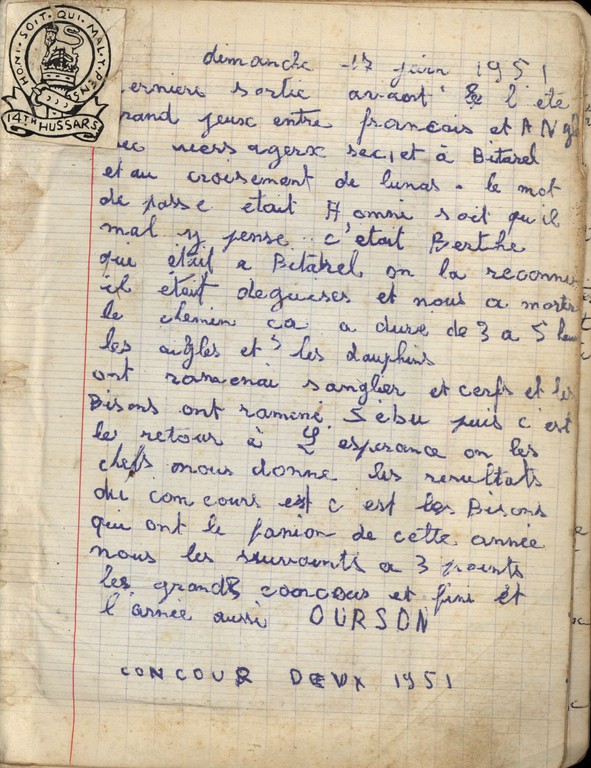 HONI. SOIT. QUI. MAL. Y. PENSE
14TH HUSSARS
dimanche 17 juin 1951
erniere sortie avant l'été
rand jeux entre francais et ANg
ec messagerx secret à Bitarel
et au croisement de lunas. le mot
de passe était Homni soit qu'il
mal y pense. c'était Berthe
qui était a Bitarel on la reconnu
il était deguises et nous a montré
le chemin ca a dure de 3 a 5 heu
les aigles et les dauphins
ont ramenai sanglier et cerfs et les
Bisons ont ramené Sebu puis c'est
le retour à L'esperance on les
chefs nous donne les resultats
du concours est c est les Bisons
qui ont le fanion de cette année
nous les suivonts a 3 points
les grands concous et fini et
l'année aussi OURSON
CONCOUR DEUX 1951